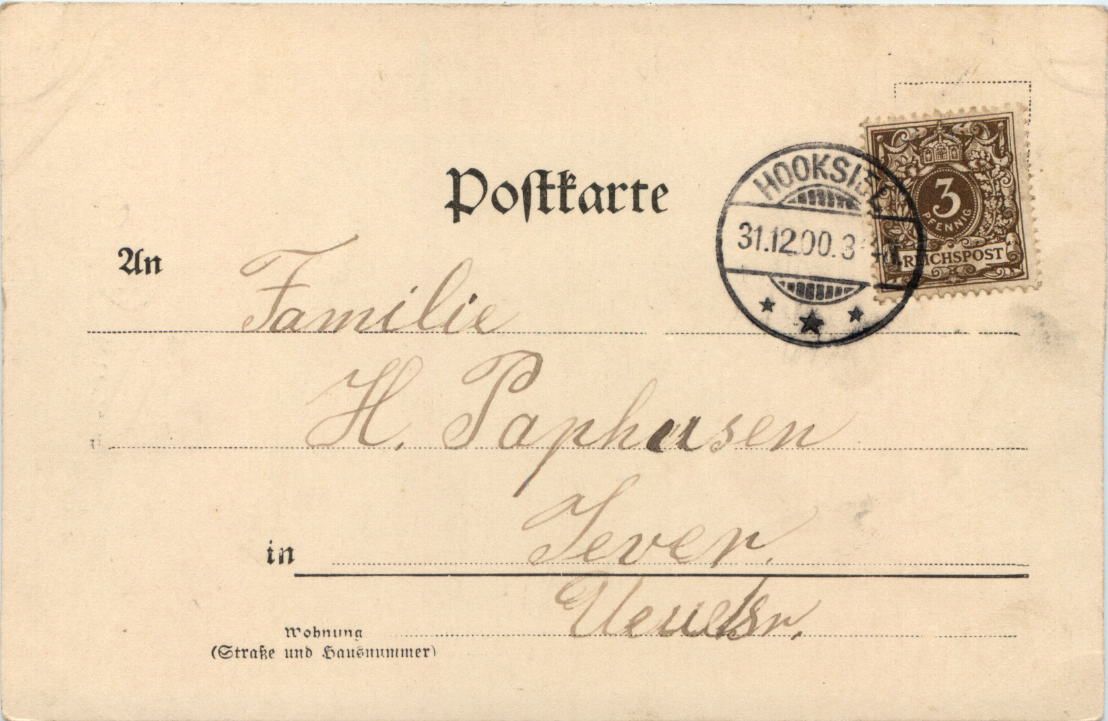 Postkarte
HOOKSIEL
31.12.00. 3
3
PFENNIG
REICHSPOST
An
Familie
H. Paphusen
in
Jever.
Wohnung
(Straße und Hausnummer)